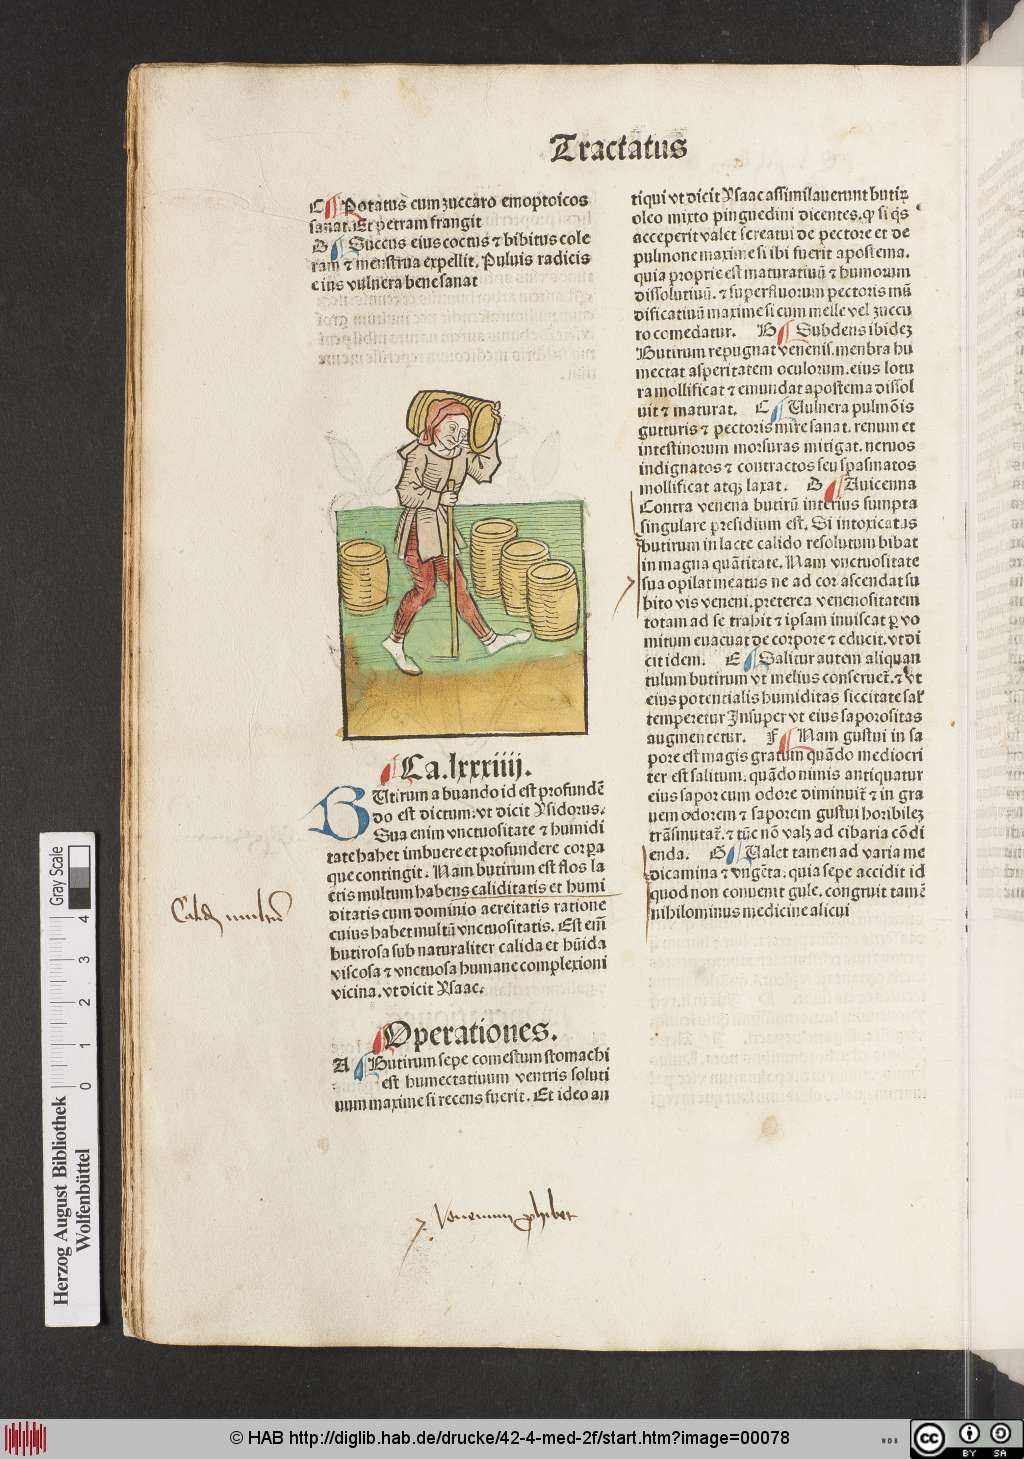 Tractatus
C Potatus cum zuccaro emoptoicos
sanat. Et petram frangit
D Succus eius coctus ⁊ bibitus cole
ram ⁊ menstrua expellit. Puluis radicis
eius vulnera bene sanat
Ca.lxxxiiij.
BUtirum a buando id est profundē
do est dictum. vt dicit Ysidorus.
Sua enim vnctuositate ⁊ humidi
tate habet imbuere et profundere corpꝛa
que contingit. Nam butirum est flos la
ctis multum habens caliditatis et humi
ditatis cum dominio aereitatis ratione
cuius habet multū vnctuositatis. Est em̄
butirosa sub naturaliter calida et hūida
viscosa ⁊ vnctuosa humane complexioni
vicina. vt dicit Ysaac.
Operationes.
A Butirum sepe comestum stomachi
est humectatiuum ventris soluti
uum maxime si recens fuerit. Et ideo an
tiqui vt dicit Ysaac assimilauerunt butiꝝ
oleo mixto pinguedini dicentes. ꝙ si q̄s
acceperit valet screatui de pectore et de
pulmone maxime si ibi fuerit apostema.
quia proprie est maturatiuū ⁊ humorum
dissolutiuū. ⁊ superfluorum pectoris mū
dificatiuū maxime si cum melle vel zucca
ro comedatur. B Subdens ibideꝫ
Butirum repugnat venenis. menbra hu
mectat asperitatem oculorum. eius lotu
ra mollificat ⁊ emundat apostema dissol
uit ⁊ maturat. C Uulnera pulmōis
gutturis ⁊ pectoris mire sanat. renum et
intestinorum morsuras mitigat. neruos
indignatos ⁊ contractos seu spasmatos
mollificat atqꝫ laxat. D Auicenna
Contra venena butirū interius sumpta
singulare presidium est. Si intoxicatus
butirum in lacte calido resolutum bibat
in magna quātitate. Nam vnctuositate
sua opilat meatus ne ad cor ascendat su
bito vis veneni. preterea venenositatem
totam ad se trahit ⁊ ipsam inuiscat ꝑ vo
mitum euacuat de corpore ⁊ educit. vt di
cit idem. E Salitur autem aliquan
tulum butirum vt melius conseruet̄. ⁊ vt
eius potentialis humiditas siccitate sal'
temperetur Insuper vt eius saporositas
augmentetur. F Nam gustui in sa
pore est magis gratum quādo mediocri
ter est salitum. quādo nimis antiquatur
eius sapor cum odore diminuit̄ ⁊ in gra
uem odorem ⁊ saporem gustui horibileꝫ
trāsmutat̄. ⁊ tūc nō valꝫ ad cibaria cōdi
enda. G Ualet tamen ad varia me
dicamina ⁊ vngēta. quia sepe accidit id
quod non conuenit gule. congruit tamē
nihilominus medicine alicui
Venenum ꝓhibet
Gray Scale
4
3
2
1
0
Herzog August Bibliothek
Wolfenbüttel
© HAB http://diglib.hab.de/drucke/42-4-med-2f/start.htm?image=00078
WDB
cc
BY SA